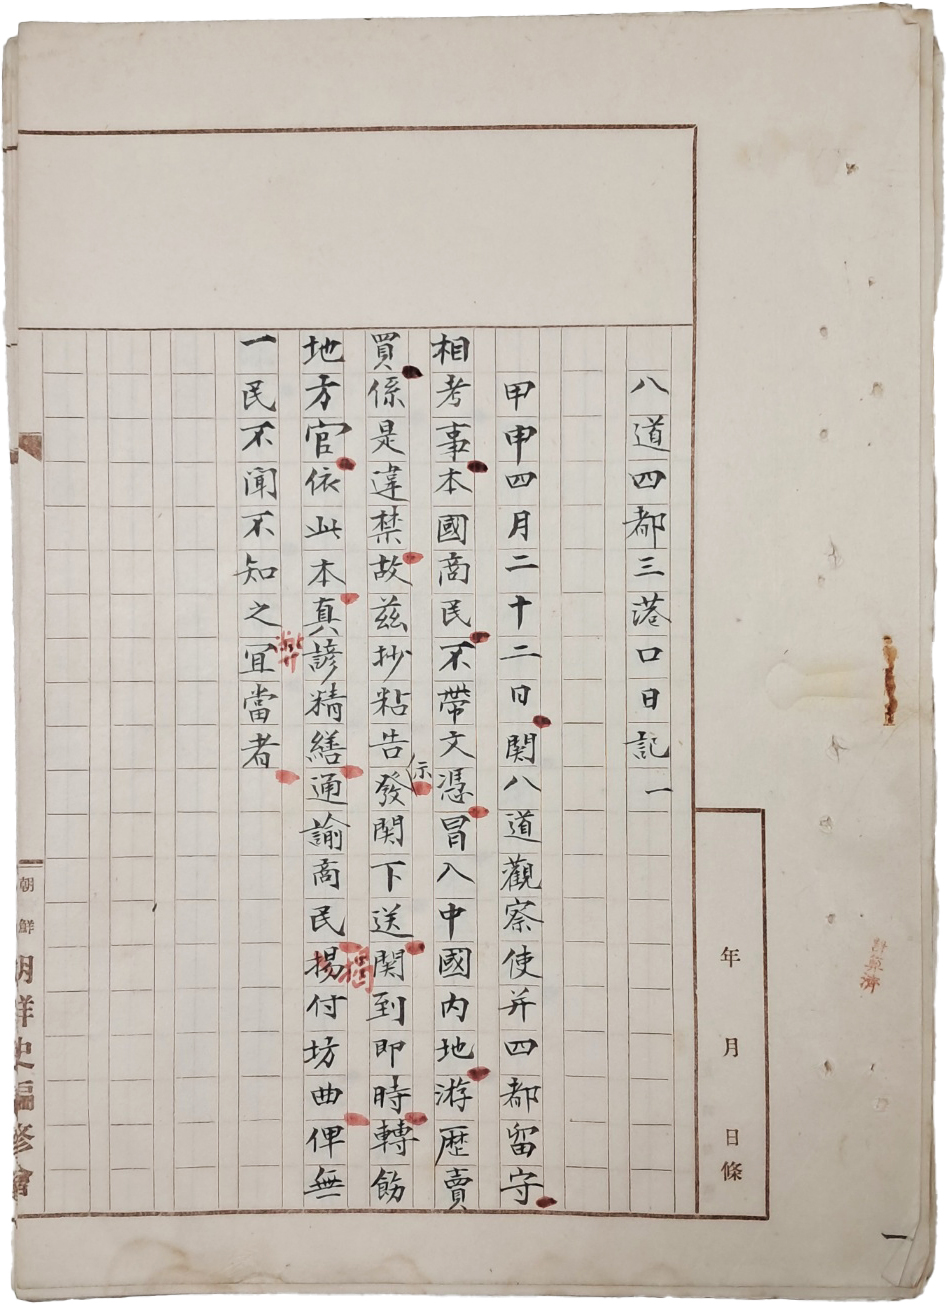 八道四都三港口日記 一
甲申四月二十二日関八道觀察使并四都留守
相考事本國商民不帶文憑冒入中國内地游歷賣
買係是違禁故茲抄粘告發関下送関到即時轉飭
示
地方官依此本真諺精繕通諭商民揚付坊曲俾無
揭
一民不聞不知之冝當者
年 月 日條
朝鮮
朝鮮史編修會